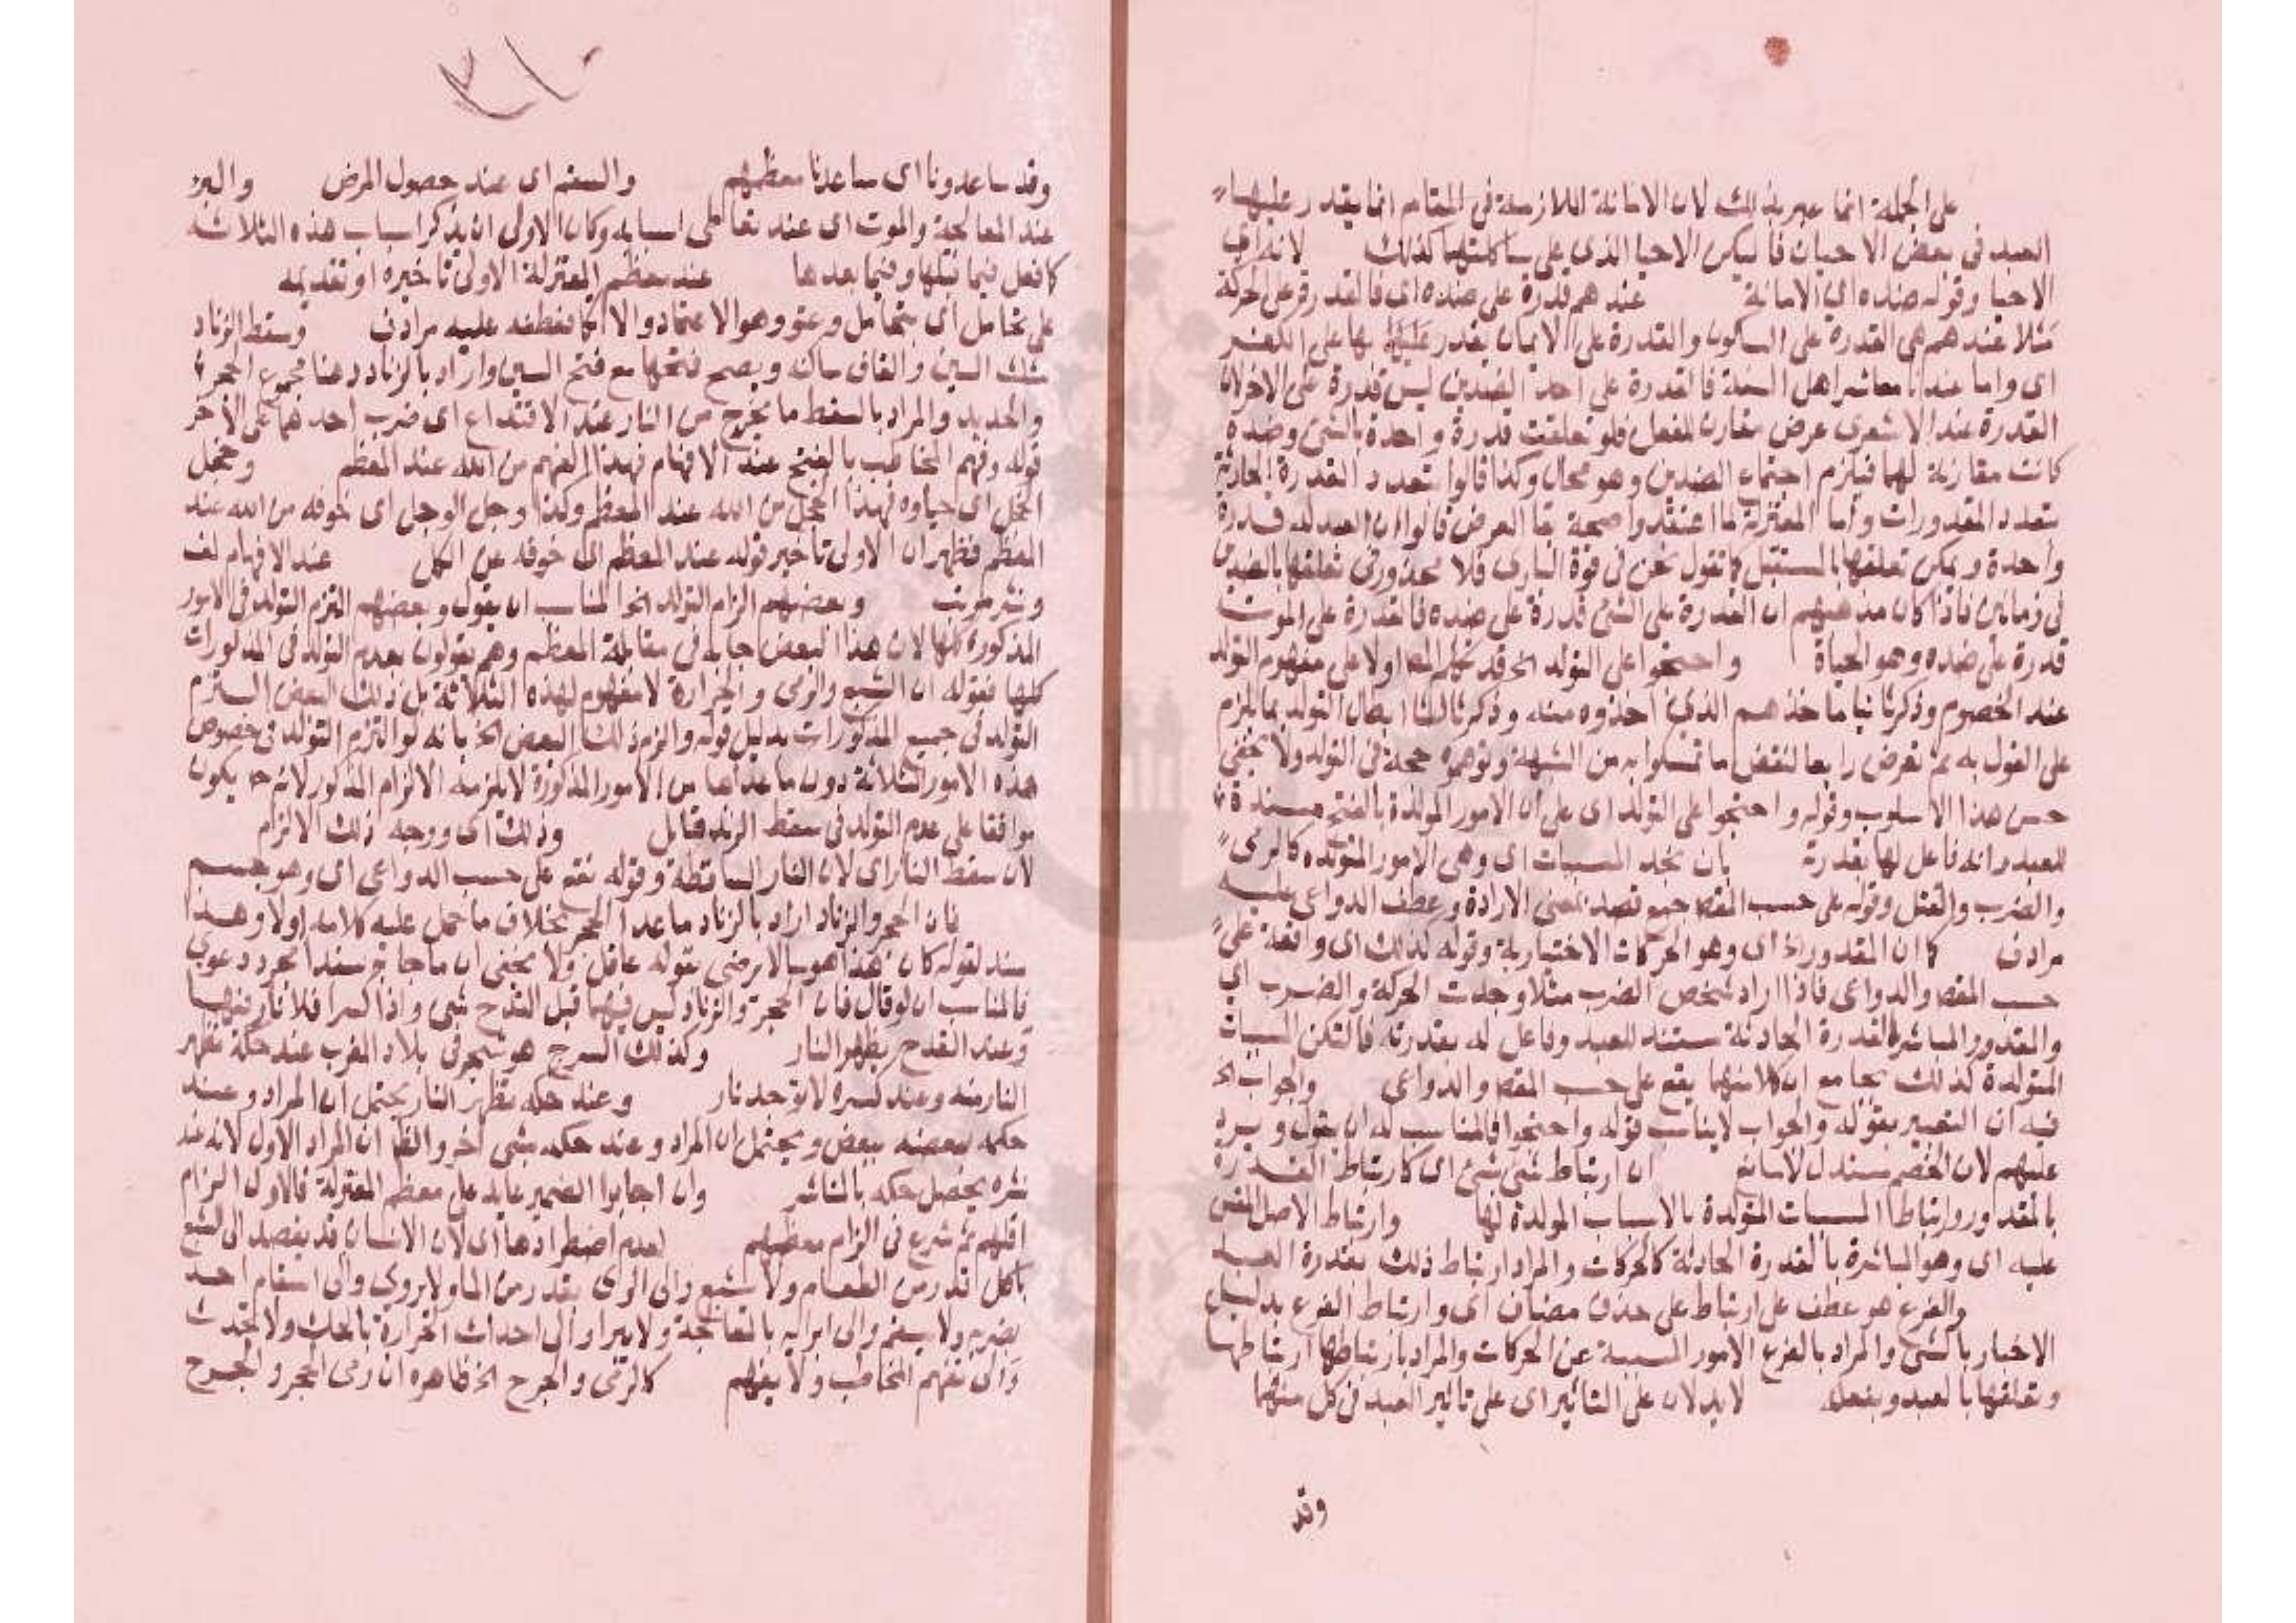 على الجملة انما عبر بذلك لان الاماتة اللازمة في المقام انما يقدر عليها
العبد في بعض الاحيان فاليكن الاحيا الذي على شاكلتها كذلك لانه اي
الاحيا وقوله ضده اي الاماتة عندهم قدرة على ضده اي فالقدرة على الحركة
مثلا عندهم هي القدرة على السكون والقدرة على الايمان يقدر بها على الكفر
اي واما عندنا معاشر اهل السنة فالقدرة على احد الضدين ليس قدرة على الاخر لان
القدرة عند الاشعري عرض مقارن للفعل فلو تعلقت قدرة واحدة بالشئ وضده
كانت مقارنة لهما فيلزم اجتماع الضدين وهو محال وكذا قالوا بتعدد القدرة الحادثة
بتعدد المقدورات واما المعتزلة لما اعتقدوا صحة بقا العرض قالوا ان العبد له قدرة
واحدة ويمكن تعلقها بالمستقبل كما نقول نحن في قوة الباري فلا محذور في تعلقها بالضدين
في زمانين فاذا كان مذهبهم ان القدرة على الشئ قدرة على ضده فالقدرة على الموت
قدرة على ضده وهو الحياة واحتجوا على التولد الخ قد تكلم المص اولا على مفهوم التولد
عند الخصوم وذكر ثانيا ماخذهم الذي اخذوه منه وذكر ثالثا ابطال التولد بما يلزم
على القول به ثم تعرض رابعا لنقض ما تمسكوا به من الشبهة وتوهموه حجة في التولد ولا يخفى
حسن هذا الاسلوب وقوله واحتجوا على التولد اي على ان الامور المولدة بالفتح مسندة
للعبد وانه فاعل لها بقدرته بان نجد المسببات اي وهي الامور المتولده كالرمي
والضرب والقتل وقوله على حسب المقصد جمع قصد بمعنى الارادة وعطف الدواعي عليه
مرادف كما ان المقدور اذ اي وهو الحركات الاختيارية وقوله كذلك اي واقعة على
حسب المقصد والدواعي فاذا اراد شخص الضرب مثلا وجدت الحركة والضرب اي
والمقدور المباشر بالقدرة الحادثة مستند للعبد وفاعل له بقدرته فالتكن المسببات
المتولدة كذلك بجامع ان كلا منهما يقع على حسب المقصد والدواعي والجواب الخ
فيه ان التعبير بقوله والجواب لا يناسب قوله واحتجوا فالمناسب له ان يقول ويرد
عليهم لان الخصم مستدل لا مانع ان ارتباط شئ بشئ اي كارتباط القدرة
بالمقدور وارتباط المسببات المتولدة بالاسباب المولدة لها وارتباط الاصل المقيس
عليه اي وهو المباشرة بالقدرة الحادثة كالحركات والمراد ارتباط ذلك بقدرة العبد
والفرع هو عطف على ارتباط على حذف مضاف اي وارتباط الفرع بدليل
الاخبار بالشئ والمراد بالفرع الامور المسببة عن الحركات والمراد بارتباطها ارتباطها
وتعلقها بالعبد وبفعله لا يدلان على التاثير اي على تاثير العبد في كل منهما
وقد
وقد ساعدونا اي ساعدنا معظمهم والسقم اي عند حصول المرض والبرء
عند المعالجة والموت اي عند تعاطي اسبابه وكان الاولى ان يذكر اسباب هذه الثلاثة
كما فعل فيما قبلها وفيما بعدها عند معظم المعتزلة الاولى تاخيره او تقديمه
على تحامل اي بتحامل وهو الاعتماد فعطفه عليه مرادف وسقط الزناد
مثلث السين والقاف ساكنه ويصح فتحها مع فتح السين واراد بالزناد هنا مجموع الحجر
والحديد والمراد بالسقط ما يخرج من النار عند الاقتداع اي ضرب احدهما على الاخر
قوله وفهم المخاطب بالفتح عند الافهام فهذا الفهم من الله عند المعظم وخجل
الخجل اي حياوه فهذا الخجل من الله عند المعظم وكذا وجل الوجل اي خوفه من الله عند
المعظم فظهر ان الاولى تاخير قوله عند المعظم اي خوفه عن الكل عند الافهام لف
ونشر مرتب وبعضهم الزام التولد الخ المناسب ان يقول وبعضهم التزم التولد في الامور
المذكورة كلها لان هذا البعض جا به في مقابلة المعظم وهم يقولون بعدم التولد في المذكورات
كلها فقوله ان الشبع والري والحرارة لا مفهوم لهذه الثلاثة بل ذلك البعض التزم
التولد في جميع المذكورات بدليل قوله والزم ذلك البعض الخ بانه لو التزم التولد في خصوص
هذه الامور الثلاثة دون ما عداها من الامور المذكورة لا يلزمه الالزام المذكور لانه ح يكون
موافقا على عدم التولد في سقط الزند فتامل وذلك اي ووجه ذلك الالزام
لان سقط النار اي لان النار الساقطة وقوله تقع على حسب الدواعي اي وهو جسم
فان الحجر والزناد اراد بالزناد ما عدا الحجر بخلاف ما حمل عليه كلامه اولا وهذا
سند لقوله كان هذا هوسا لا يرضى بقوله عاقل ولا يخفى ان ما جا به سندا مجرد دعوى
فالمناسب ان لو قال فان الحجر والزناد ليس فيهما قبل القدح شئ واذا كسرا فلا نار فيهما
وعند القدح يظهر النار وكذلك السرح هو شجر في بلاد المغرب عند حكه تظهر
النار منه وعند كسره لا توجد نار وعند حكه تظهر النار يحتمل ان المراد وعند
حكه بعضه ببعض ويحتمل ان المراد وعند حكه بشئ اخر والظا ان المراد الاول لانه عند
نشره يحصل حكه بالناشر وان اجابوا الضمير عايد على معظم المعتزلة فالاول الزام
اقلهم ثم شرع في الزام معظمهم لعدم اضطرادها اي لان الانسان قد يقصد الى الشبع
باكل قدر من الطعام ولا يشبع والى الري بقدر من الما ولا يروى والى اسقام احد
بضربه ولا يسقم والى ابرايه بالمعالجة ولا يبرا والى احداث الحرارة بالحك ولا تحدث
والى تفهم المخاطب ولا يفهم كالرمي والجرح الخ ظاهره ان رمى الحجر والجرح